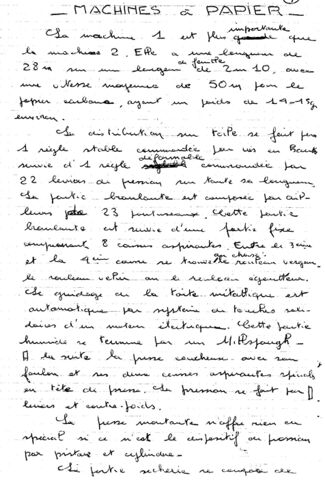 MACHINES à PAPIER
La machine 1 est plus importante que
la machine 2. Elle a une longueur de
28 m sur une largeur de feuille de 2m10, avec
une vitesse moyenne de 50 m pour le
papier carbone, ayant un poids de
environ.
La distribution sur toile se fait par
1 règle stable commandée par vis en Bronze
suivie d'1 règle déformable commandée par
22 leviers de pression sur toute sa longueur.
La partie branlante est composée par
leurs de 23 pontuseaux. Cette partie
branlante est suivie d'une partie fixe
comprenant 8 caisses aspirantes. Entre la 3ème
et la 4ème caisse se trouve placé le rouleau vergeur
le rouleau vélin ou le rouleau égoutteur.
Le guidage de la toile métallique est
automatique par système de touches soli-
daires d'un moteur électrique. Cette partie
humide se termine par un Millspaugh -
A la suite la presse coucheuse avec son
foulon et ses deux caisses aspirantes spéciales
en tête de presse. La pression se fait par
leviers et contre-poids.
La presse montante n'offre rien de
spécial si ce n'est le dispositif de pression
par pistons et cylindre -
La partie sécherie se compose de